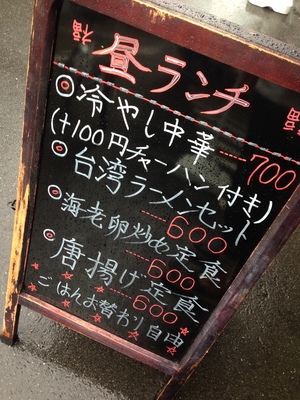 福 昼ランチ 福
冷やし中華----700
(+100円チャーハン付き)
台湾ラーメンセット
----600
海老卵炒め定食
----600
唐揚げ定食
----600
ごはんよ替わり自由